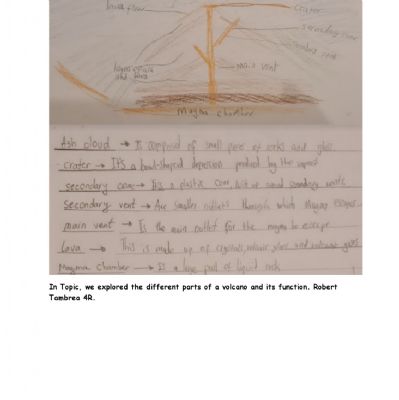 lava flow
crater
secondary cone
secondary vent
layers of ash
and lava
main vent
Magma chamber
Ash cloud → Is composed of small piece of rocks and glass.
crater → It's a bowl-shaped depression produced by the
secondary cone → It's a plastic cone, built at around secondary vents
Secondary vent → Are smaller outlets through which magma escapes.
main vent → Is the main outlet for the magma to escape
lava → This is made up of crystals, volcanic glass and volcanic gases
Magma Chamber → Is a large pool of liquid rock
In Topic, we explored the different parts of a volcano and its function. Robert
Tambrea 4R.